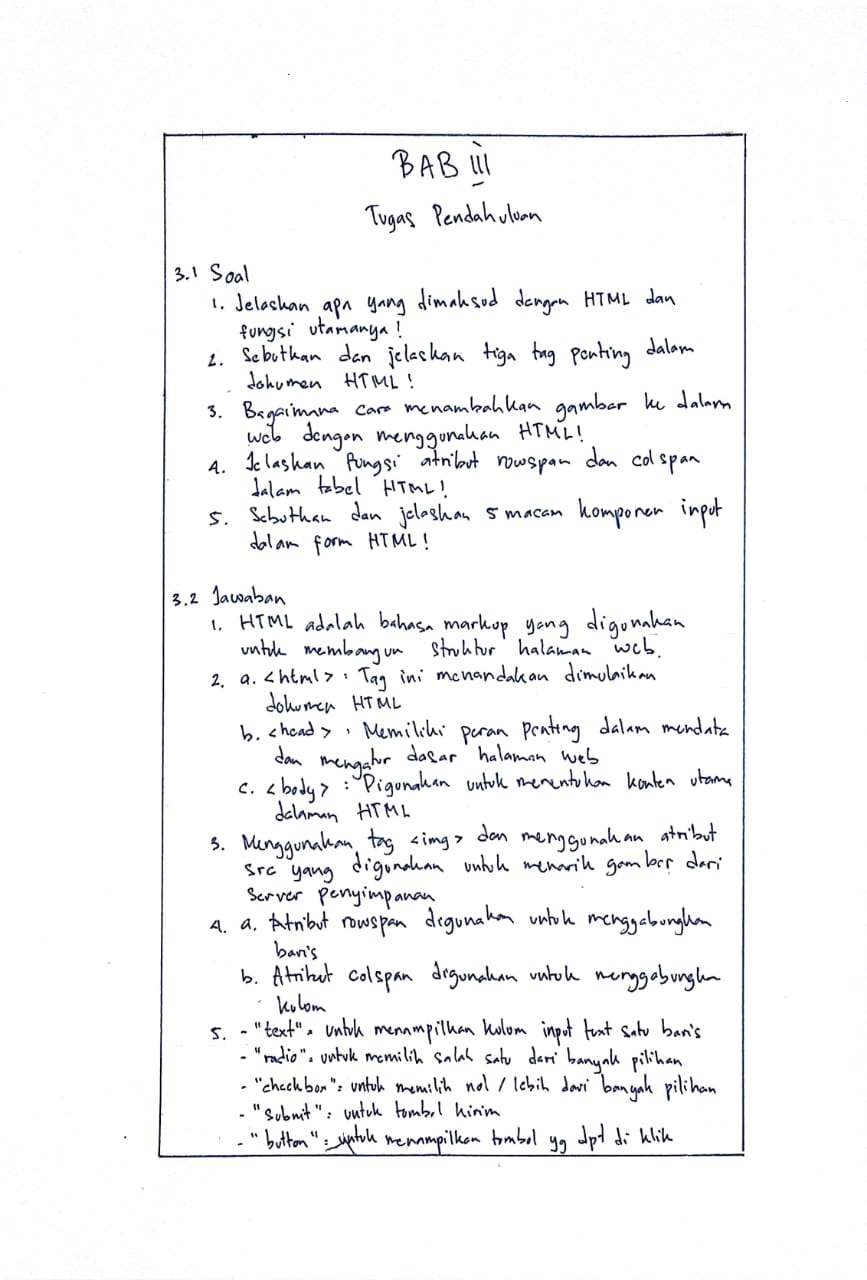 BAB III
Tugas Pendahuluan
3.1 Soal
1. Jelaskan apa yang dimaksud dengan HTML dan
fungsi utamanya !
2. Sebutkan dan jelaskan tiga tag penting dalam
dokumen HTML !
3. Bagaimana cara menambahkan gambar ke dalam
web dengan menggunakan HTML!
4. Jelaskan fungsi atribut rowspan dan colspan
dalam tabel HTML!
5. Sebutkan dan jelaskan 5 macam komponen input
dalam form HTML!
3.2 Jawaban
1. HTML adalah bahasa markup yang digunakan
untuk membangun struktur halaman web.
2. a. <html> : Tag ini menandakan dimulaikan
dokumen HTML
b. <head> : Memiliki peran penting dalam mendata
dan mengatur dasar halaman web
c. <body> : Digunakan untuk menentukan konten utama
dalaman HTML
3. Menggunakan tag <img> dan menggunakan atribut
src yang digunakan untuk menarik gambar dari
server penyimpanan
4. a. Atribut rowspan digunakan untuk menggabungkan
baris
b. Atribut colspan digunakan untuk menggabungka
kolom
5. - "text" : untuk menampilkan kolom input text satu baris
- "radio" : untuk memilih salah satu dari banyak pilihan
- "checkbox" : untuk memilih nol / lebih dari banyak pilihan
- "submit" : untuk tombol kirim
- "button" : untuk menampilkan tombol yg dpt di klik